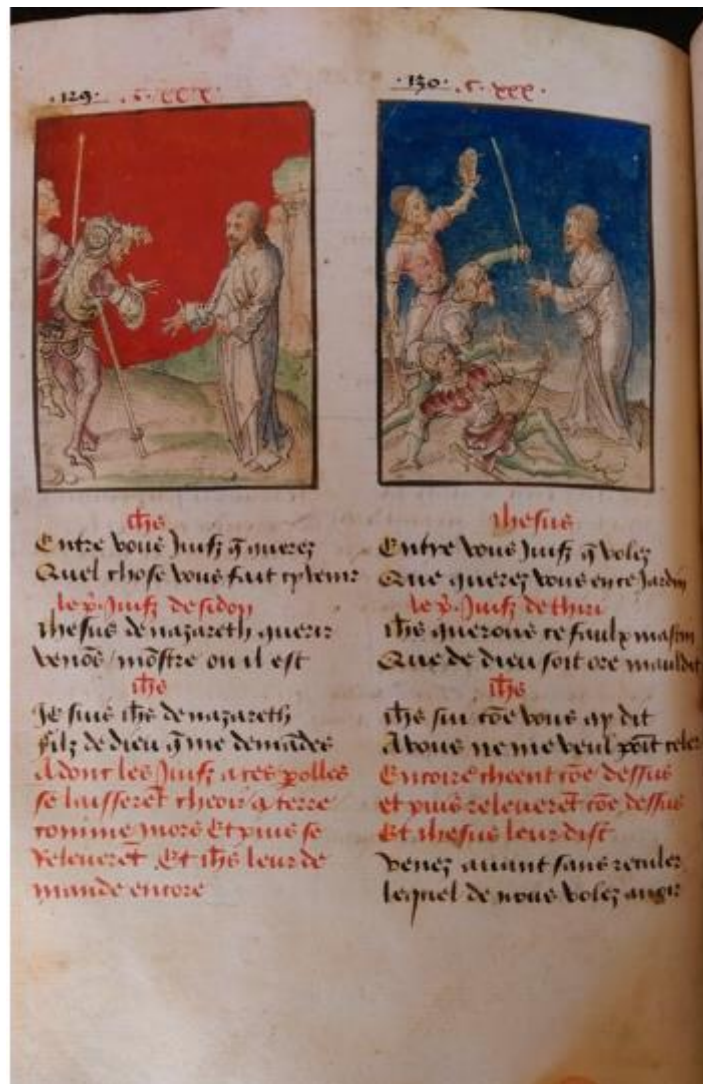 ·129· ·C· XXIX·
ihs
Entre vous Juifz q̃ querez
Quel chose vous fait cy venir
le p̃. Juifz de sidon
Ihesus de nazareth querir
venõs / mõstre ou il est
ihs
Je suis ihs de nazareth
filz de dieu q̃ me demãdes
Adont les Juifz a ces polles
se laisseret̃ cheoir a terre
comme mors Et puis se
releveret̃ . Et ihs leur de
mande encore
·130· ·C· xxx·
Ihesus
Entre vous Juifz q̃ volez
Que querez vous en ce Jardin
le p̃. Juifz de thiri
ihs querons ce faulx mastin
Que de dieu soit ore mauldit
ihs
ihs sui cõe vous ay dit
A vous ne me veul poĩt celer
Encoire cheent cõe dessus
et puis releveret̃ cõe dessus
Et Ihesus leur dist
venez avant sans reculer
lequel de nous volez